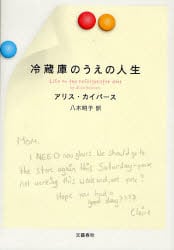 冷蔵庫のうえの人生
Life on the refrigerator door
by Alice Kuipers
アリス・カイパース
八木明子 訳
Mom,
I NEED new glasses. We should go to
the store again this Saturday - you're
not working this weekend, are you?
Hope you had a
good day????
Claire
文藝春秋